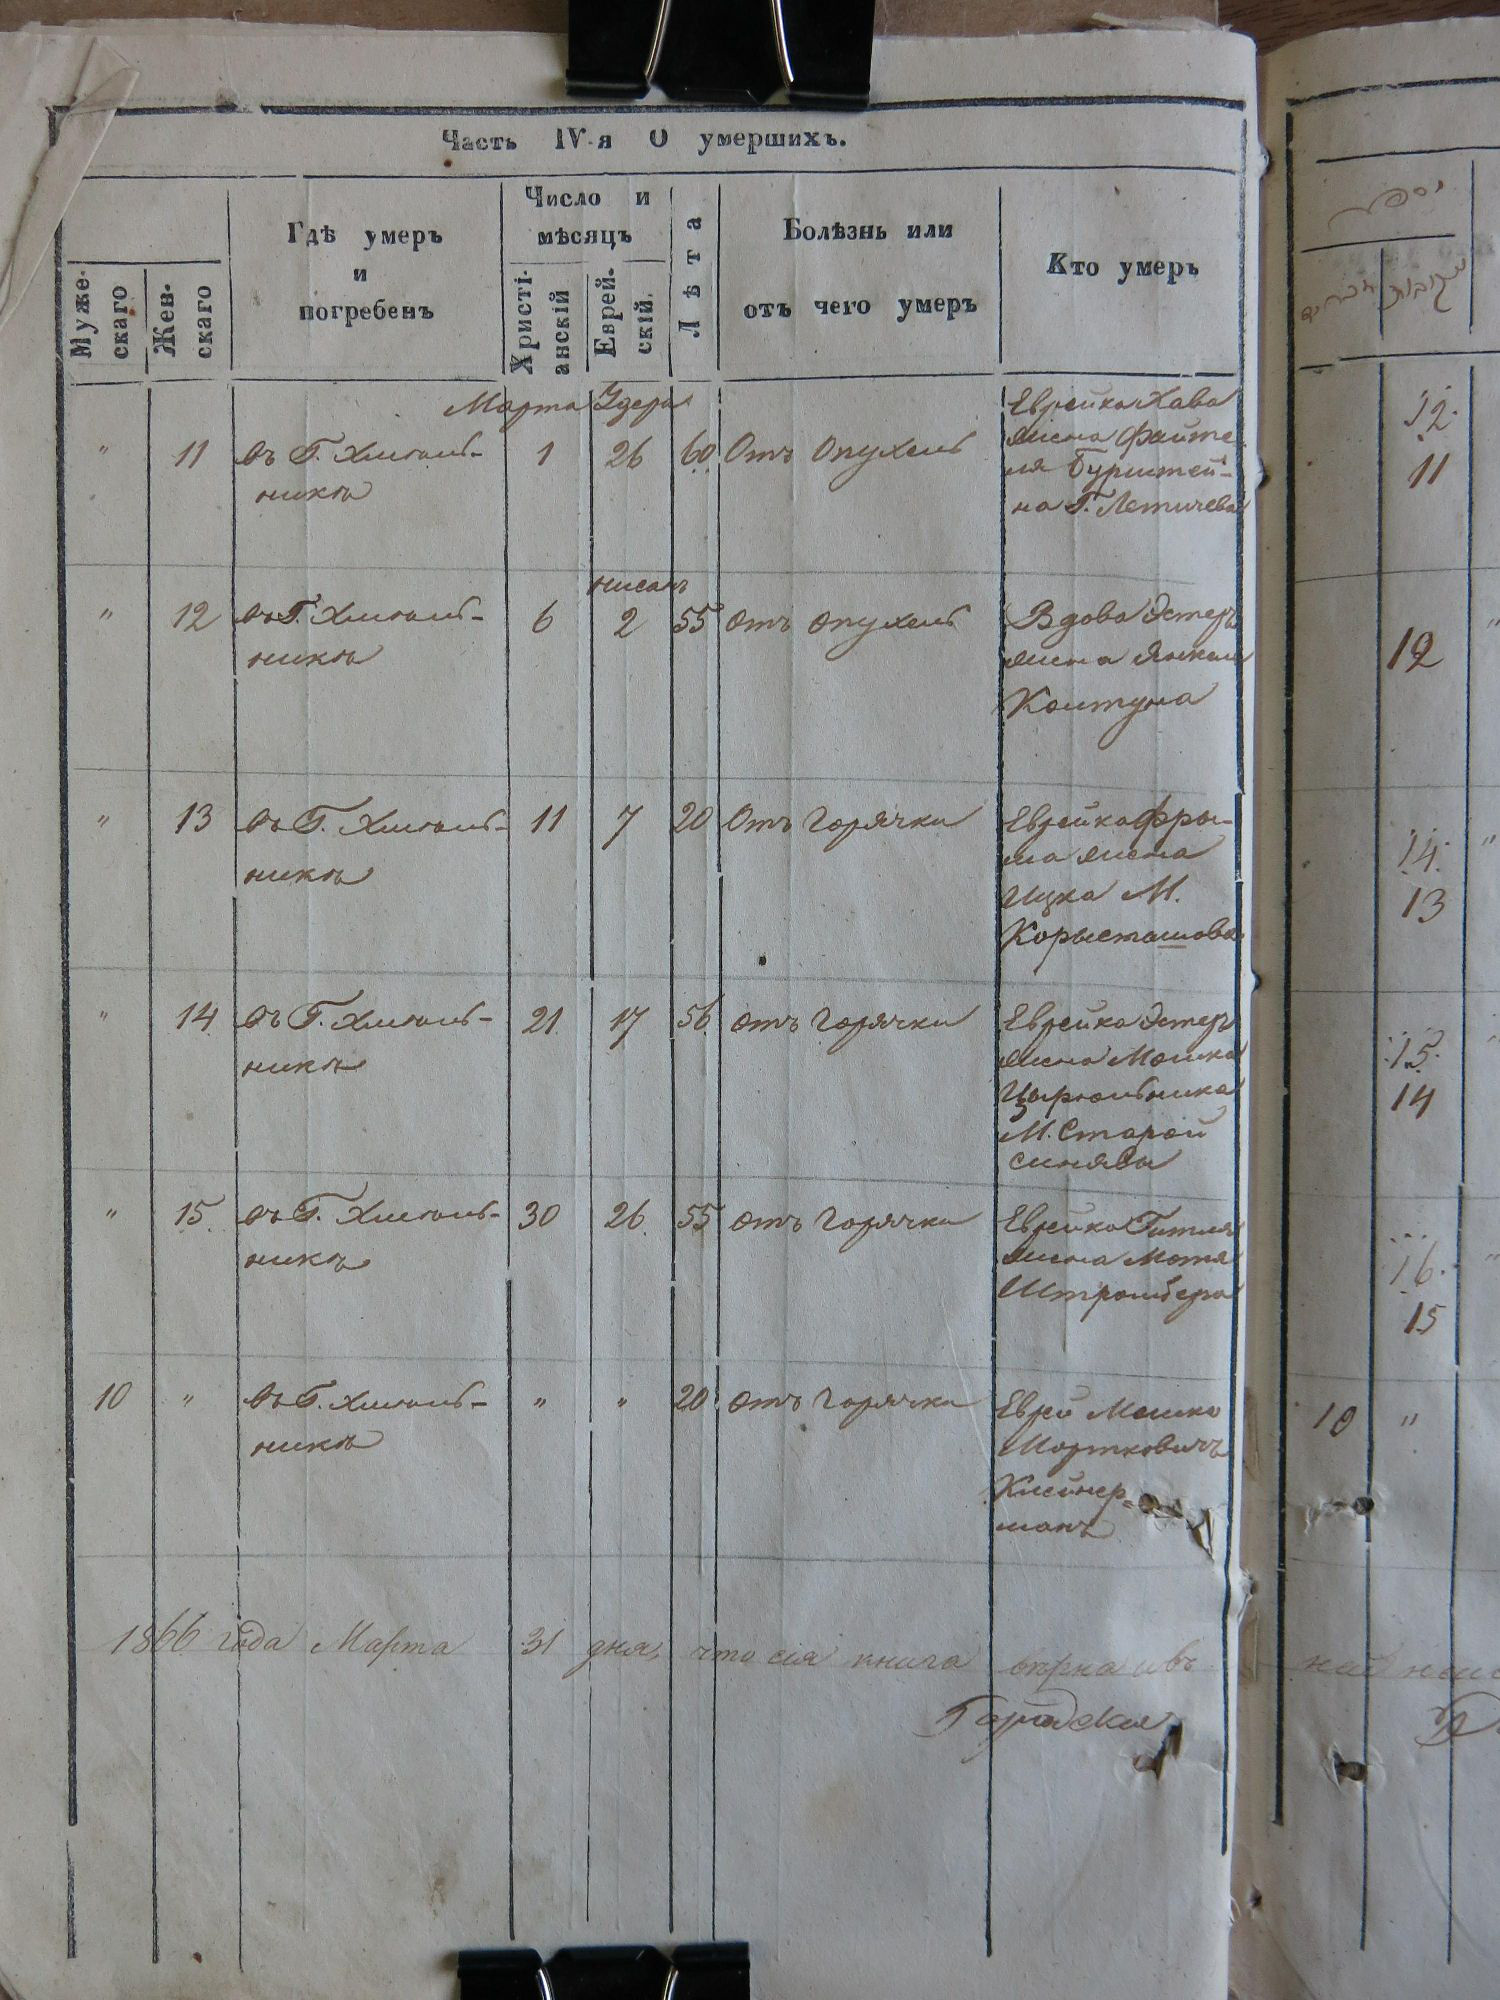 Часть IV-я О умершихъ.
Мужескаго
Женскаго
Гдѣ умеръ
и
погребенъ
Число и
мѣсяцъ
Христі-
анскій
Еврей-
скій.
Лѣта
Болѣзнь или
отъ чего умеръ
Кто умеръ
Марта Удера
" 11 въ Г. Хмѣль- 1 26 60 Отъ Опухель Еврейка Хава
никѣ жена Файте-
ля Бурштей-
на Г. Летичева
нисанъ
" 12 въ Г. Хмѣль- 6 2 55 отъ опухель Вдова Эстеръ
никѣ жена Янкеля
Колтуна
" 13 въ Г. Хмѣль- 11 7 20 Отъ горячки Еврейка Фры-
никѣ ма жена
Ицка М.
" 14 въ Г. Хмѣль- 21 17 56 отъ горячки Еврейка Эстеръ
никѣ жена Мошка
Цырюльника
М. Старой
синявы
" 15 въ Г. Хмѣль- 30 26 55 отъ горячки Еврейка Гитля
никѣ жена Мотя
Штромберга
10 " въ Г. Хмѣль- " " 20 отъ горячки Еврей Мошко
никѣ Мортковичъ
Клейнер-
манъ
1866 года Марта 31 дня, что сія книга вѣрна и въ
12.
11
12
14.
13
15.
14
16.
15
10 "